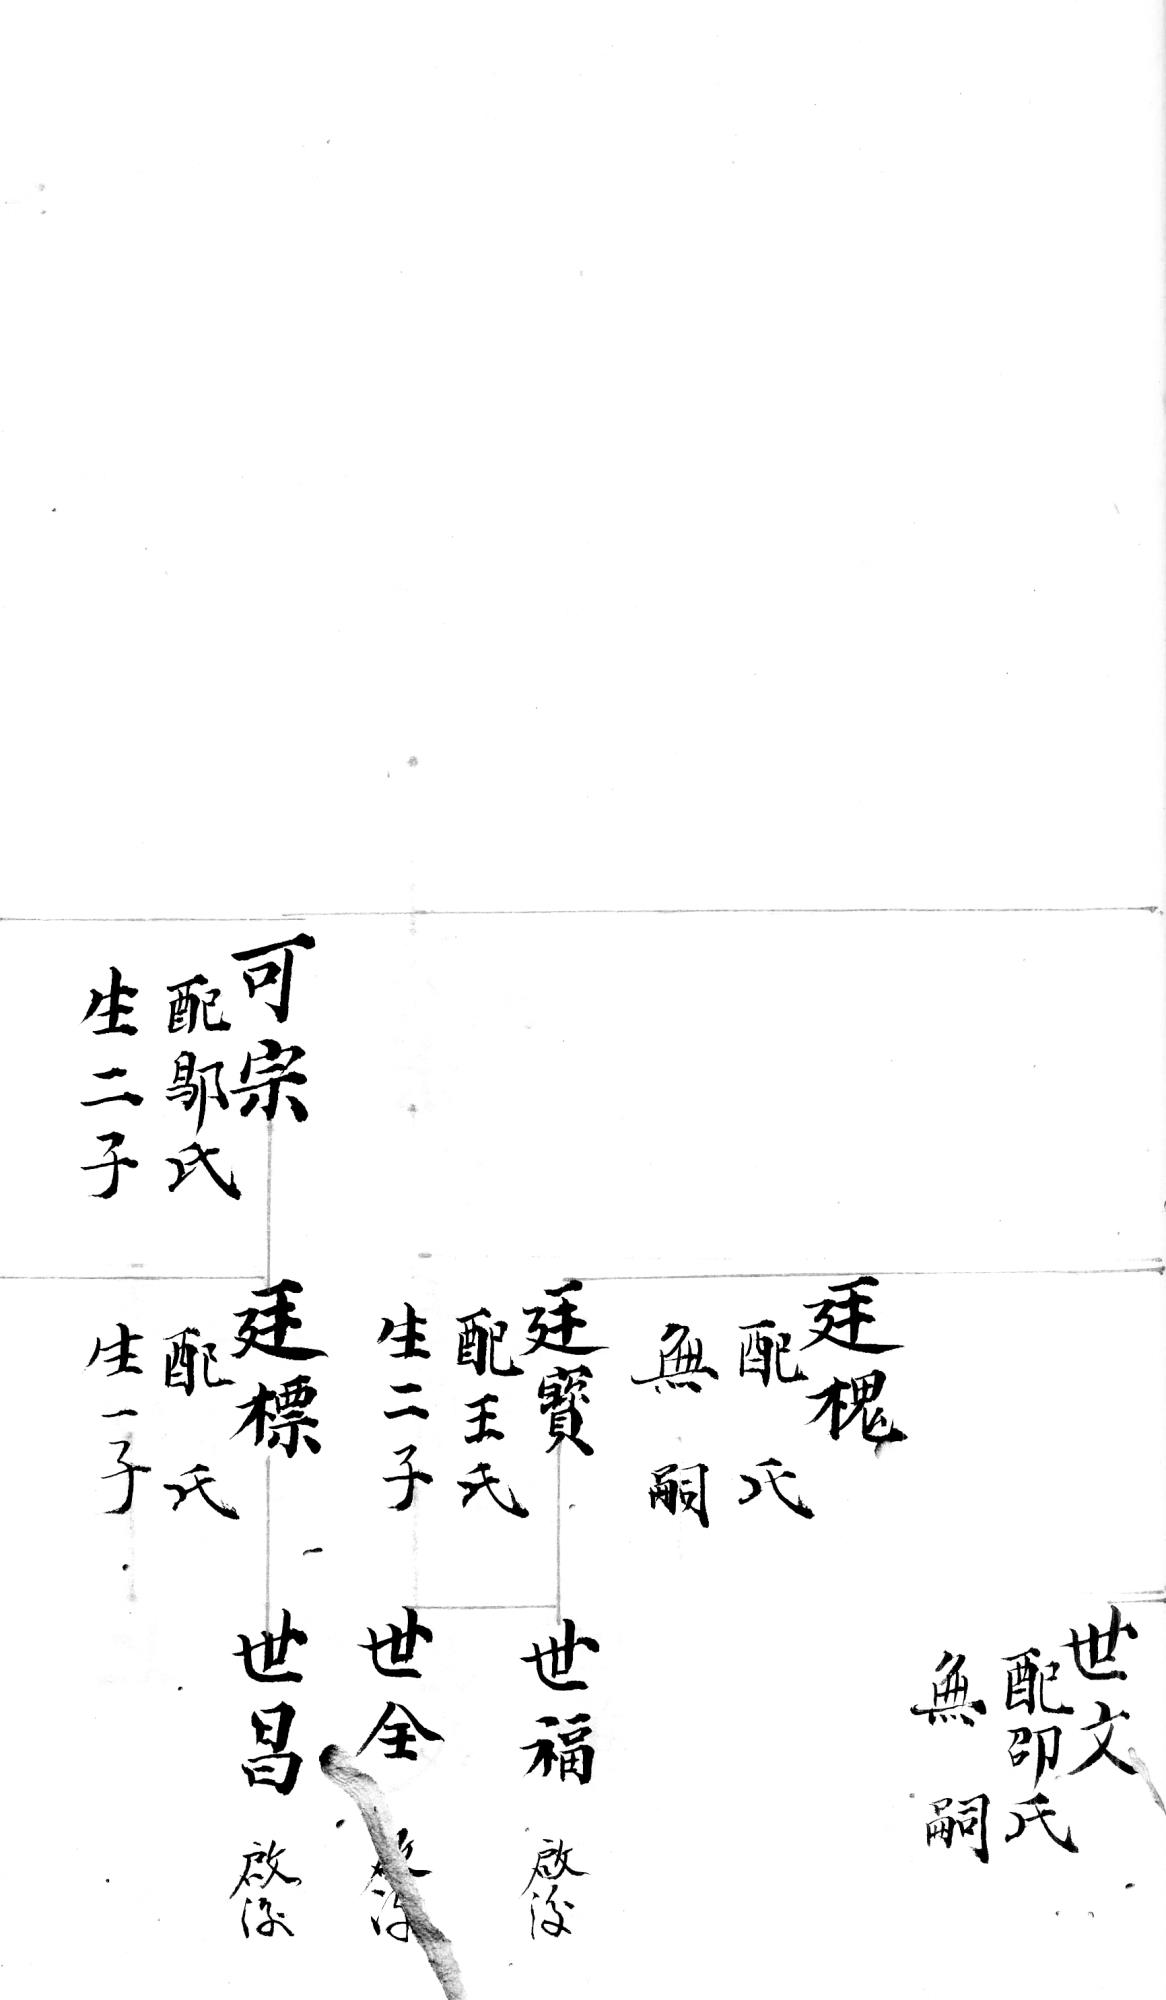 可宗
配鄔氏
生二子
廷槐
配 氏
無嗣
廷寳
配王氏
生二子
廷標
配 氏
生一子
世文
配邵氏
無嗣
世福 啟後
世全
世昌 啟後